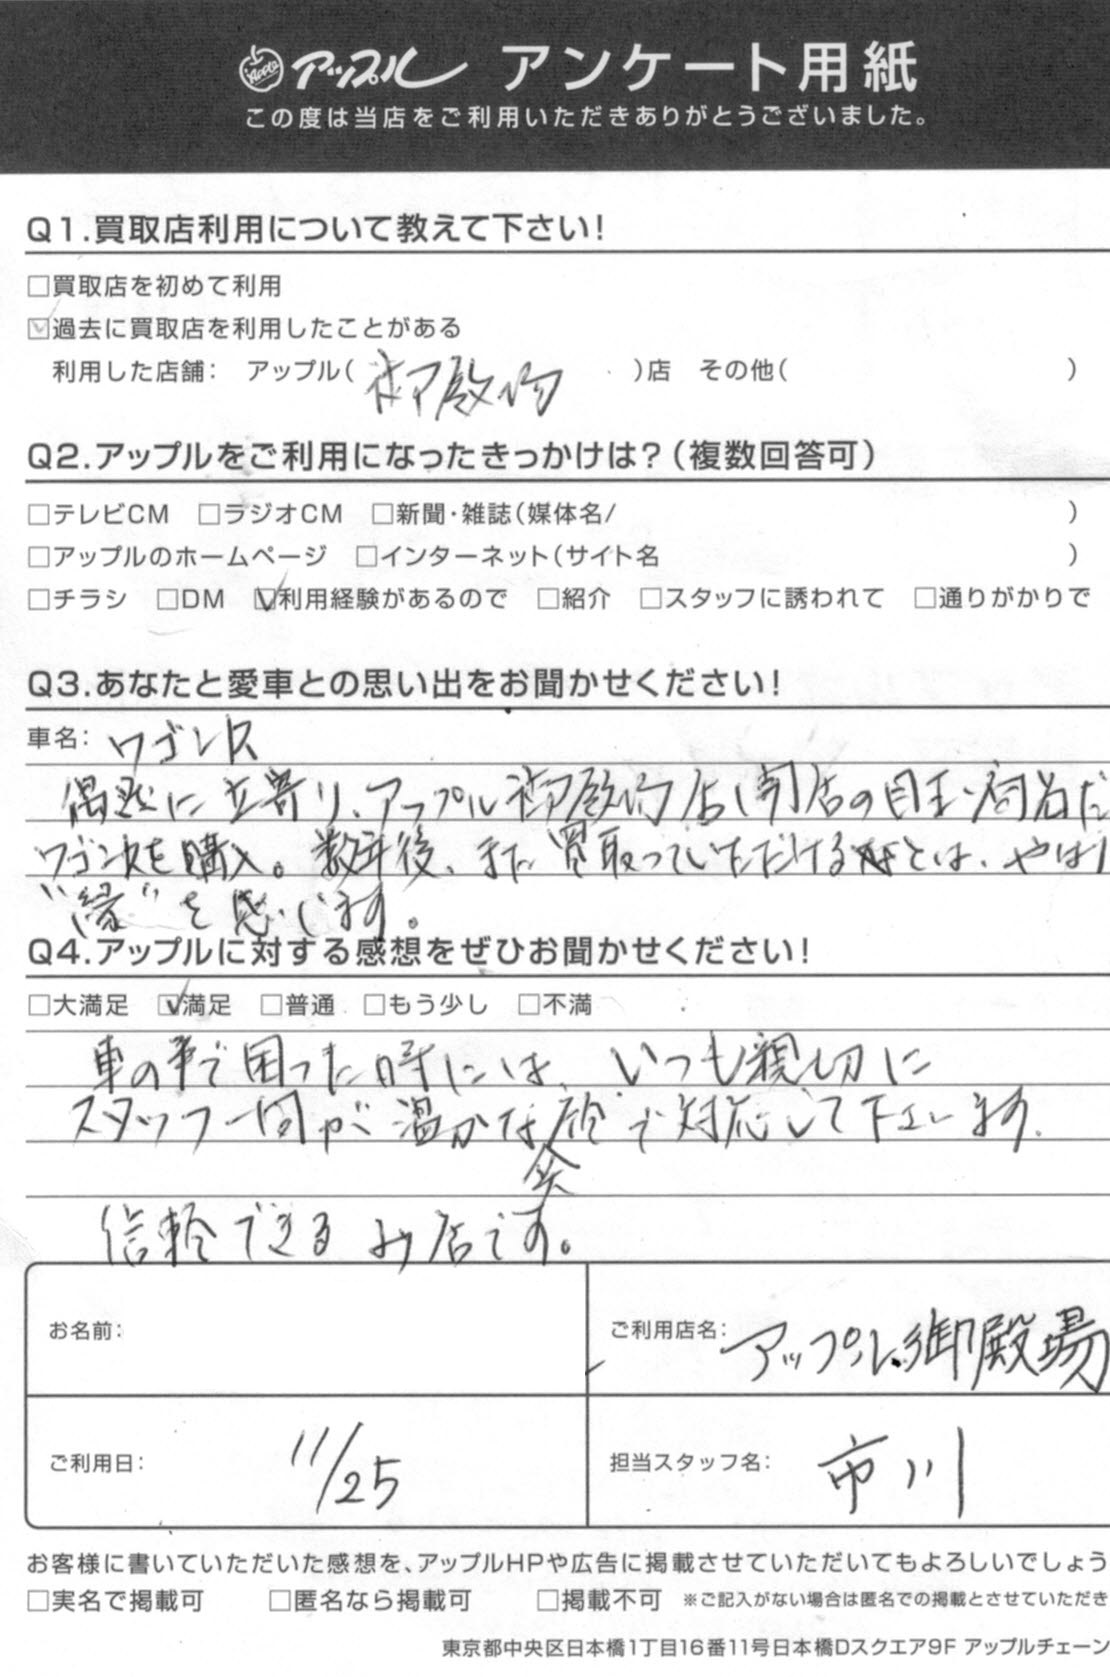 Apple アップル アンケート用紙
この度は当店をご利用いただきありがとうございました。
Q1.買取店利用について教えて下さい!
□買取店を初めて利用
☑過去に買取店を利用したことがある
利用した店舗: アップル(御殿場)店 その他( )
Q2.アップルをご利用になったきっかけは?(複数回答可)
□テレビCM □ラジオCM □新聞・雑誌(媒体名/ )
□アップルのホームページ □インターネット(サイト名 )
□チラシ □DM ☑利用経験があるので □紹介 □スタッフに誘われて □通りがかりで
Q3.あなたと愛車との思い出をお聞かせください!
車名: ワゴンR
偶然に立寄り、アップル御殿場店開店の目玉商品だ
ワゴンRを購入。数年後、また買取っていただけるとは、やはり
"縁"を感じます。
Q4.アップルに対する感想をぜひお聞かせください!
□大満足 ☑満足 □普通 □もう少し □不満
車の事で困った時には、いつも親切に
スタッフ一同が温かな で対応して下さいます。
信頼できるお店です。
お名前:
ご利用店名: アップル御殿場
ご利用日: 11/25
担当スタッフ名: 市川
お客様に書いていただいた感想を、アップルHPや広告に掲載させていただいてもよろしいでしょう
□実名で掲載可 □匿名なら掲載可 □掲載不可 ※ご記入がない場合は匿名での掲載とさせていただき
東京都中央区日本橋1丁目16番11号日本橋Dスクエア9F アップルチェーン